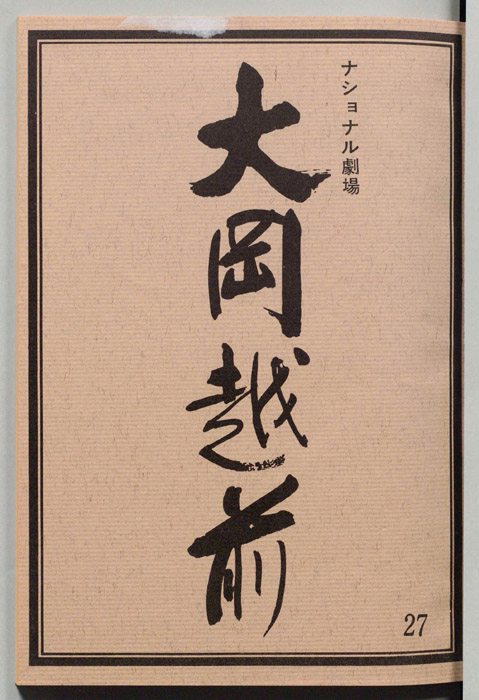 ナショナル劇場
大岡越前
27